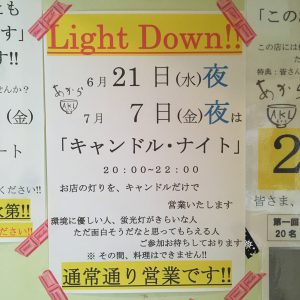 Light Down!!
6月 21日(水)夜
7月 7日(金)夜は
「キャンドル・ナイト」
20:00~22:00
お店の灯りを、キャンドルだけで
営業いたします
環境に優しい人、蛍光灯がきらいな人
ただ面白そうだなと思ってもらえる人
ご参加お待ちしております
※ その間、料理はできません!!
通常通り営業です!!
とも
です」
せんか?
(金)
ート
ださい!!
次第!!
「この
この店には
特典:皆さん
あから
AKU
2
皆さま、
第一回
20名